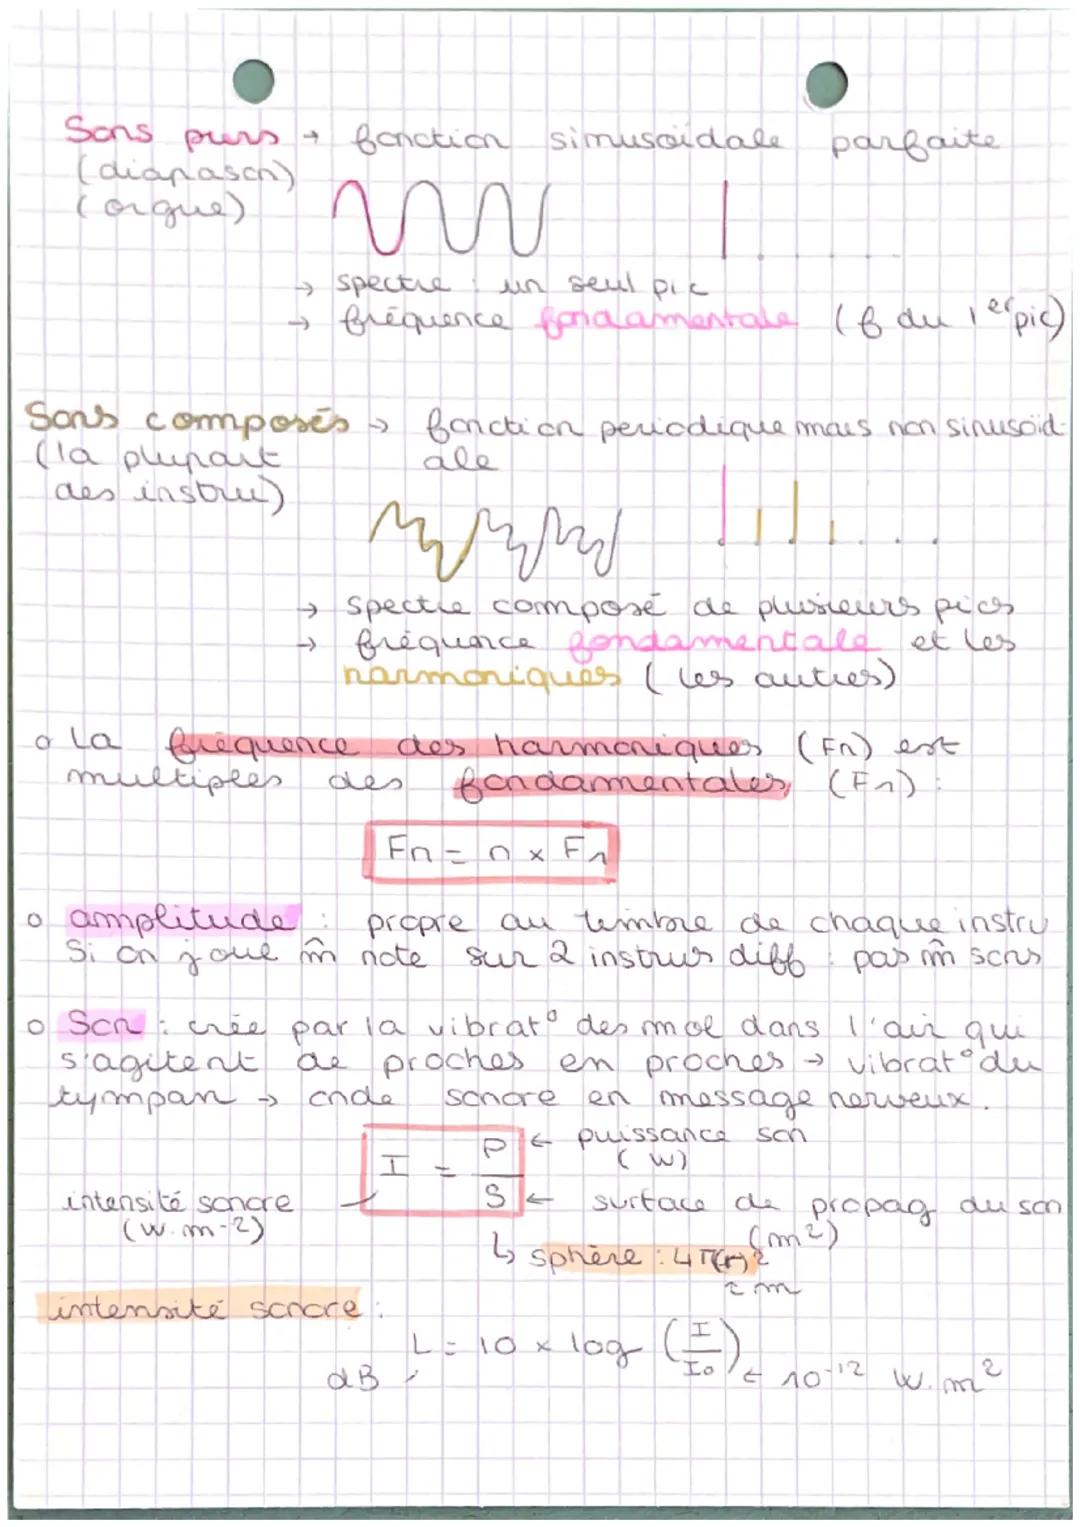 Sons purs → fonction simusoïdale parfaite
(diapason)
(orgue)
→ spectre : un seul pic
→ fréquence fondamentale (f du 1er pic)
Sons composés → fonction periodique mais non sinusoïd-
(la plupart ale
des instru)
→ spectre composé de plusieurs pics
→ fréquence fondamentale et les
harmoniques (les autres)
o La fréquence des harmoniques (Fn) est
multiples des fondamentales (F1) :
Fn = n × F1
o amplitude : propre au timbre de chaque instru
Si on joue m̂ note sur 2 instrus diff : pas m̂ sons
o Son : crée par la vibrat° des mol dans l'air qui
s'agitent de proches en proches → vibrat° du
tympan → onde sonore en message nerveux.
I = P/S ← puissance son
(W)
intensité sonore ← surface de propag du son
(W.m-2) (m²)
↳ sphère : 4π(r)²
en m
intensité sonore :
L = 10 × log (I/I0) ← 10⁻¹² W.m²
dB